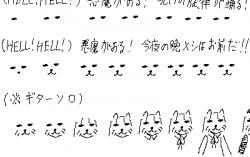 (HELL!HELL!) 悪魔がある! の旋律が踊る!
(HELL!HELL!) 悪魔がある! 今夜の晩メシはお前だ!!
(※ギターソロ)